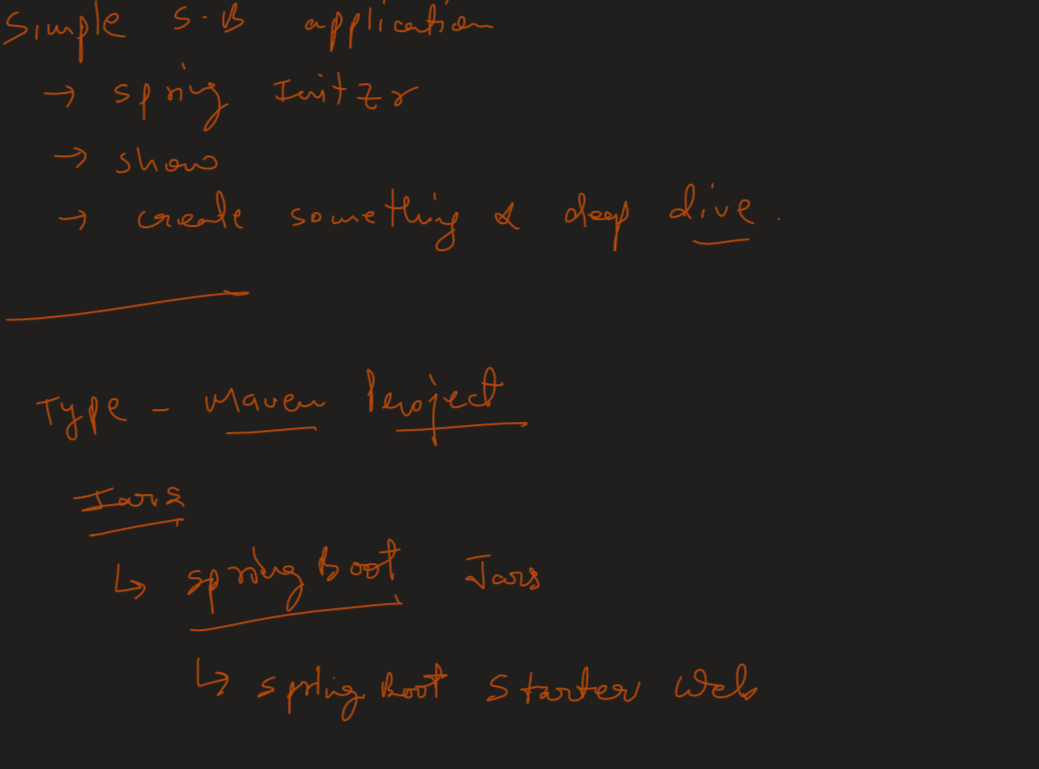 Simple S.B application
→ spring Initzr
→ show
→ create something & deep dive.
Type - Maven Project
Jars
↳ spring Boot Jars
↳ spring Boot Starter Web